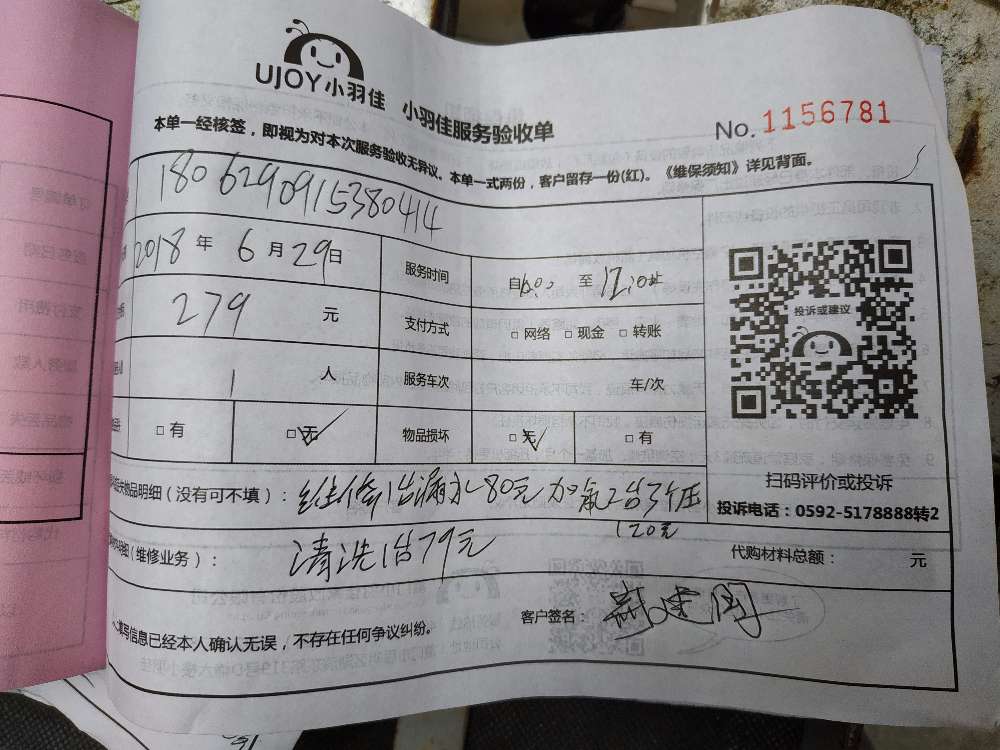 UJOY小羽佳 小羽佳服务验收单
No. 1156781
本单一经核签，即视为对本次服务验收无异议。本单一式两份，客户留存一份(红)。《维保须知》详见背面。
1806290915380414
2018 年 6 月 29 日 服务时间 自 至
279 元 支付方式 □ 网络 □ 现金 □ 转账
投诉或建议
1 人 服务车次 车/次
□ 有 □ 无 物品损坏 □ 无 □ 有
扫码评价或投诉
投诉电话：0592-5178888转2
物品明细（没有可不填）： 维修1台漏水80元 加氟2台3个压
120元
（维修业务）： 清洗1台79元 代购材料总额： 元
填写信息已经本人确认无误，不存在任何争议纠纷。 客户签名：